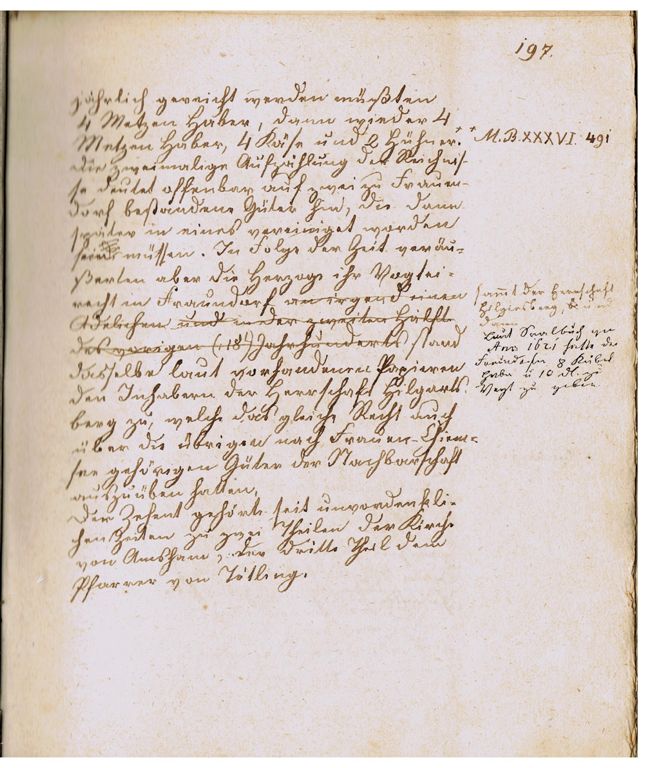 197.
jährlich gereicht werden mußten
4 Metzen Haber, dann wieder 4
Metzen Haber, 4 Käse und 2 Hühner.*
* M.B. XXXVI. 491
Die zweimalige Aufzählung der Reichnis-
se deutet offenbar auf zwei zu Frauen-
dorf bestandene Güter hin, die dann
später in eines vereiniget worden
müssen. In Folge der Zeit veräu-
ßerten aber die Herzoge ihr Vogtei-
recht in Fraundorf an irgend einen
Adelichen und in der zweiten Hälfte
des vorigen (:18:) Jahrhunderts stand
dasselbe laut vorhandenen Papieren
den Inhabern der Herrschaft Hilgarts-
berg zu, welche das gleiche Recht auch
über die übrigen nach Frauen-Chiem-
see gehörigen Güter der Nachbarschaft
auszuüben hatten.
Der Zehent gehörte seit unvordenkli-
chen Zeiten zu zwei Theilen der Kirche
von Amsham, der dritte Theil dem
Pfarrer von Tötling.
sammt der Herrschaft
Hilgartsberg,
dann
Laut Saalbuch von
Ann 1621 hatte der
8 Kübel
Haber u 10 dl. zu
Vogt zu geben